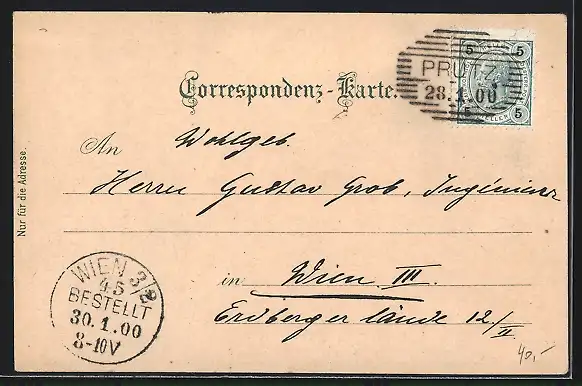 5 5
PRUTZ
28.1.00
5 5
Correspondenz-Karte.
An Wohlgeb.
Herrn Gustav Grob, Ingénieur
in Wien III.
Erdbergerlände 12/II
Nur für die Adresse.
WIEN 3/2
45
BESTELLT
30.1.00
8-10V
40,-